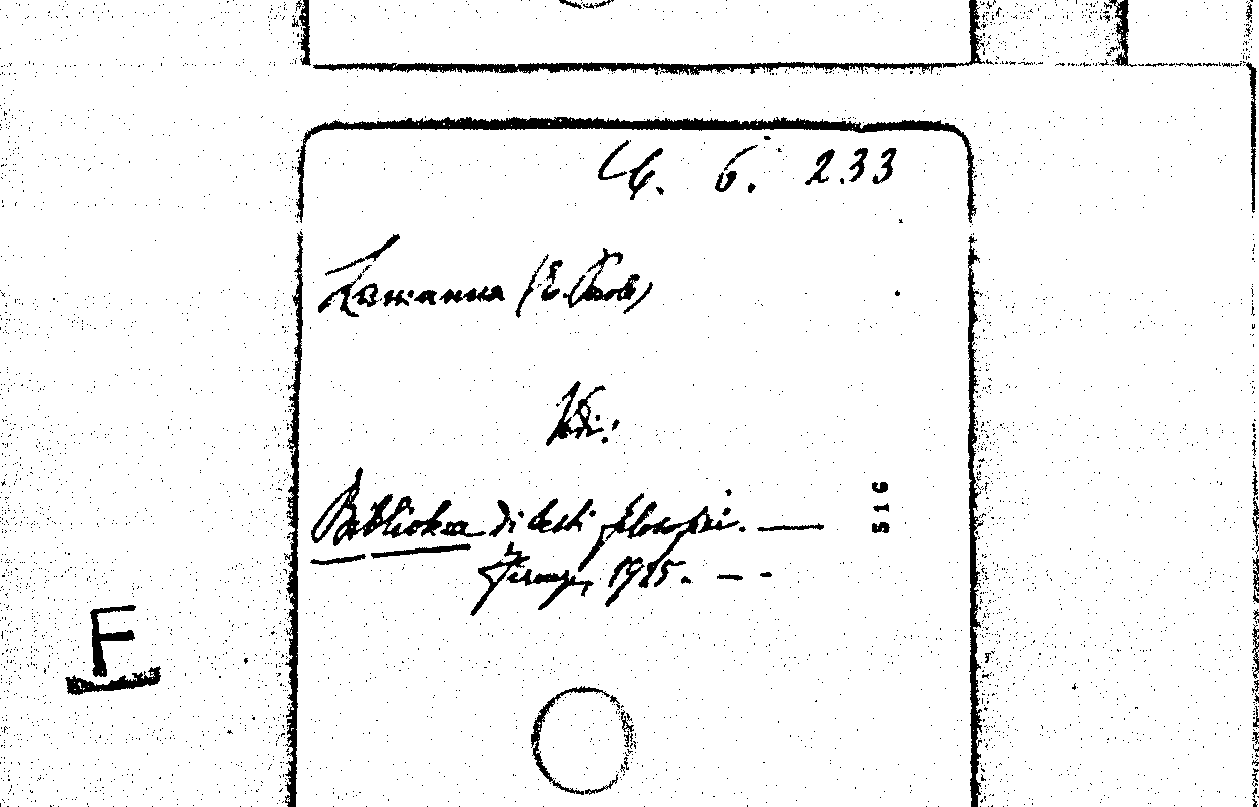 6. 233
Lamanna (E. Paolo)
Vedi:
Biblioteca di testi filosofici. —
516
Firenze, 1925. - -
F